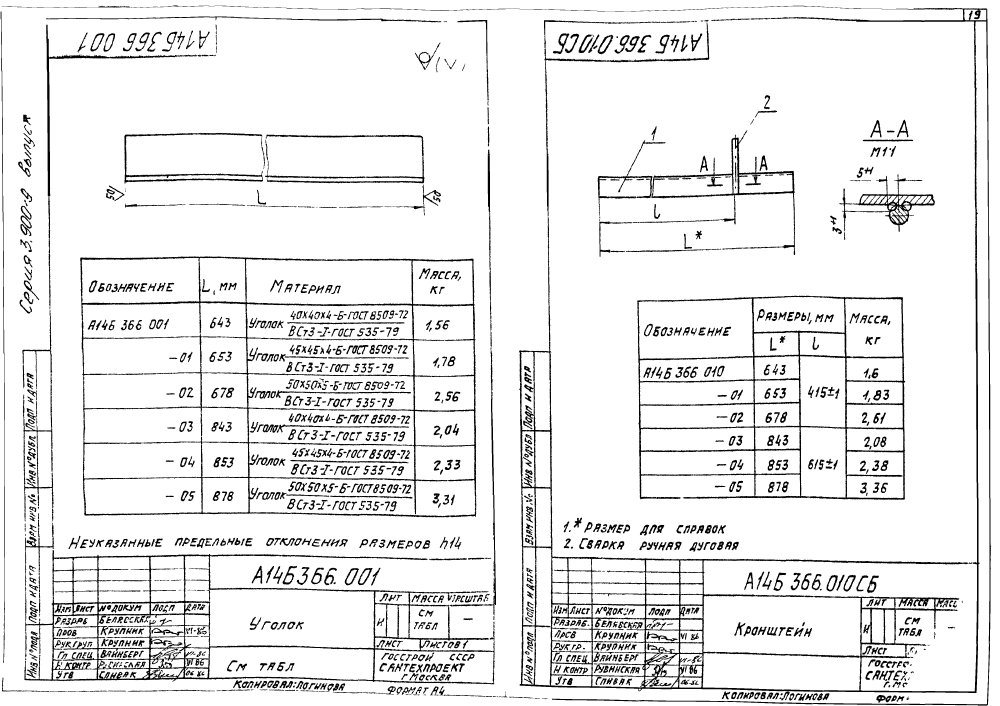 19
А14Б 366 001
Серия 3.900-9 выпуск
50
50
L
Обозначение L, мм Материал Масса, кг
А14Б 366 001 643 Уголок 40х40х4-Б-ГОСТ 8509-72 / ВСт3-I-ГОСТ 535-79 1,56
-01 653 Уголок 45х45х4-Б-ГОСТ 8509-72 / ВСт3-I-ГОСТ 535-79 1,78
-02 678 Уголок 50х50х5-Б-ГОСТ 8509-72 / ВСт3-I-ГОСТ 535-79 2,56
-03 843 Уголок 40х40х4-Б-ГОСТ 8509-72 / ВСт3-I-ГОСТ 535-79 2,04
-04 853 Уголок 45х45х4-Б-ГОСТ 8509-72 / ВСт3-I-ГОСТ 535-79 2,33
-05 878 Уголок 50х50х5-Б-ГОСТ 8509-72 / ВСт3-I-ГОСТ 535-79 3,31
Неуказанные предельные отклонения размеров h14
Подп и дата
Инв №дубл
Взам инв №
Подп и дата
Инв №подл
А14Б366.001
Изм Лист №докум Подп Дата
Разраб Белявская
Пров Крупник VI-86
Рук.групп Крупник
Гл спец Вайнберг VI-86
Н контр Рувинская VI 86
Утв Спивак 06.86
Уголок
См табл
Лит Масса Масштаб
И См табл —
Лист Листов 1
Госстрой СССР
Сантехпроект
г Москва
Копировал: Логинова
Формат А4
А14Б 366.010СБ
1
2
А А
l
L*
А-А
М1:1
5+1
3+1
Обозначение Размеры, мм Масса, кг
L* l
А14Б 366 010 643 415±1 1,6
-01 653 1,83
-02 678 2,61
-03 843 615±1 2,08
-04 853 2,38
-05 878 3,36
1.* Размер для справок
2. Сварка ручная дуговая
Подп и дата
Инв №дубл
Взам инв №
Подп и дата
Инв №подл
А14Б 366.010СБ
Изм Лист №докум Подп Дата
Разраб. Белявская
Пров Крупник VI 86
Рук.гр. Крупник
Гл спец Вайнберг VI-86
Н контр Рувинская VI 86
Утв Спивак 06.86
Кронштейн
Лит Масса
И См табл —
Лист
Госстро
Сантех
Копировал: Логинова
Форм